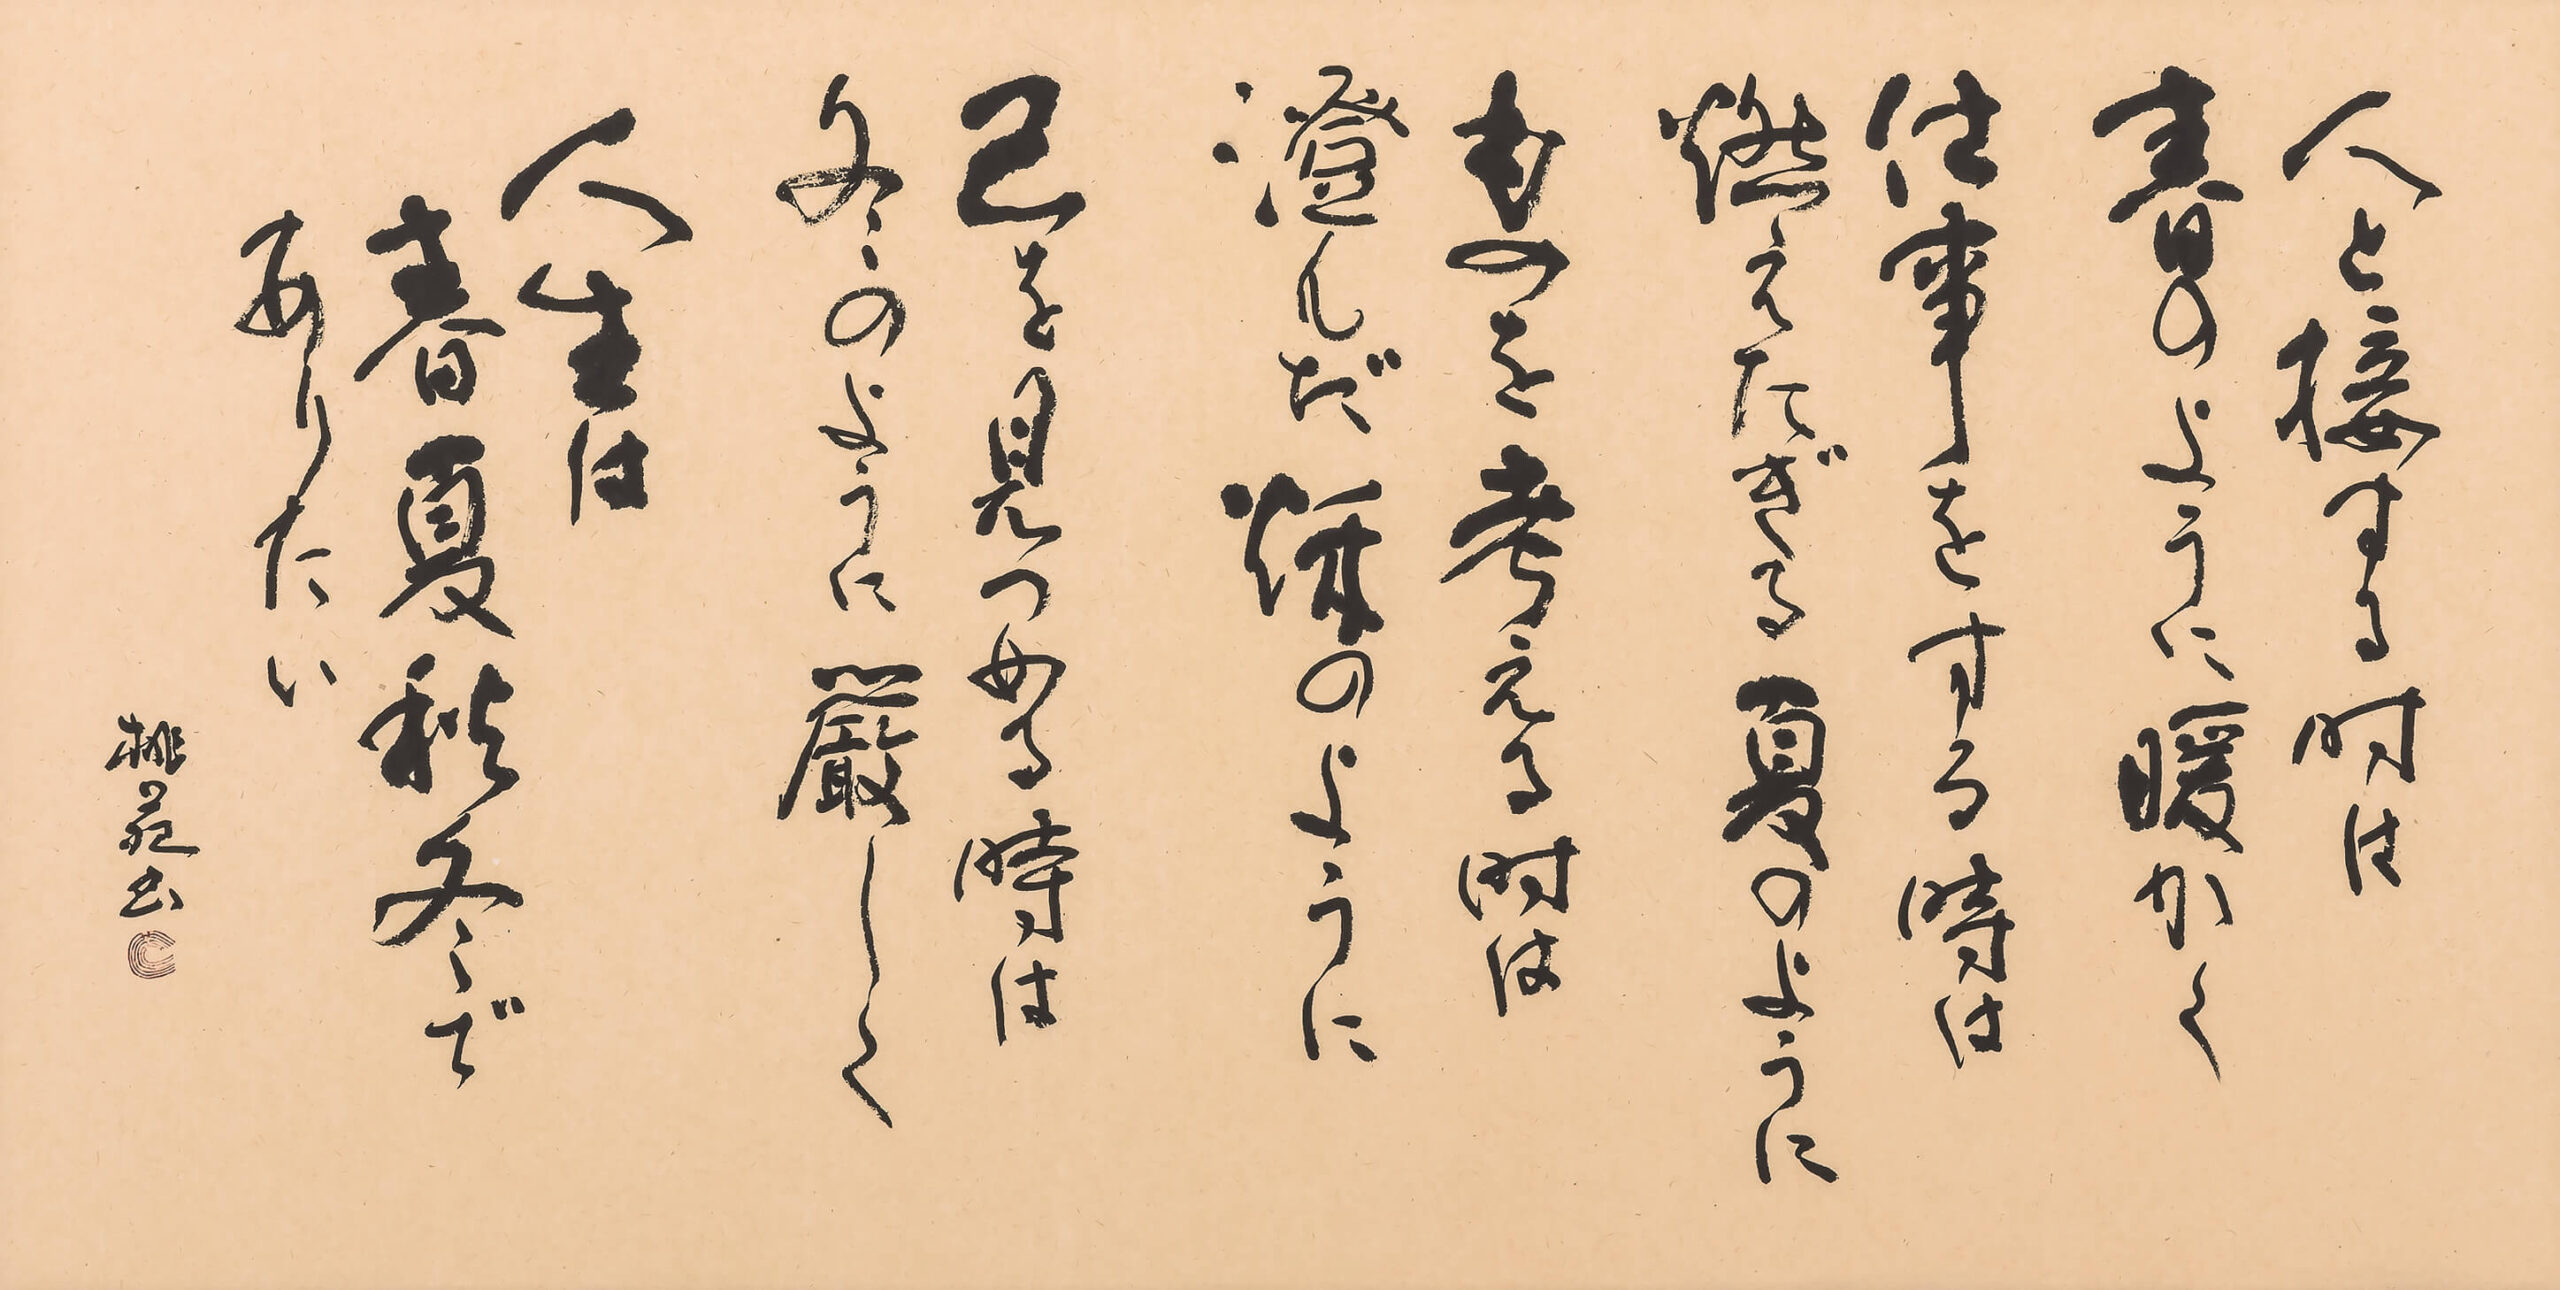 人と接する時は
春のように暖かく
仕事をする時は
燃えたぎる夏のように
ものを考える時は
澄んだ秋のように
己を見つめる時は
冬のように厳しく
人生は
春夏秋冬で
ありたい
桃苑書